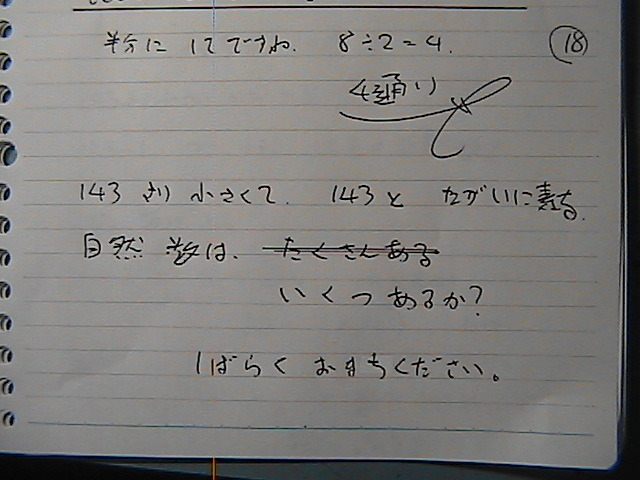 半分に してですね。 8÷2=4. ⑱
4通り
143より 小さくて、 143と たがいに素な
自然数は、 たくさんある
いくつあるか?
しばらく おまちください。